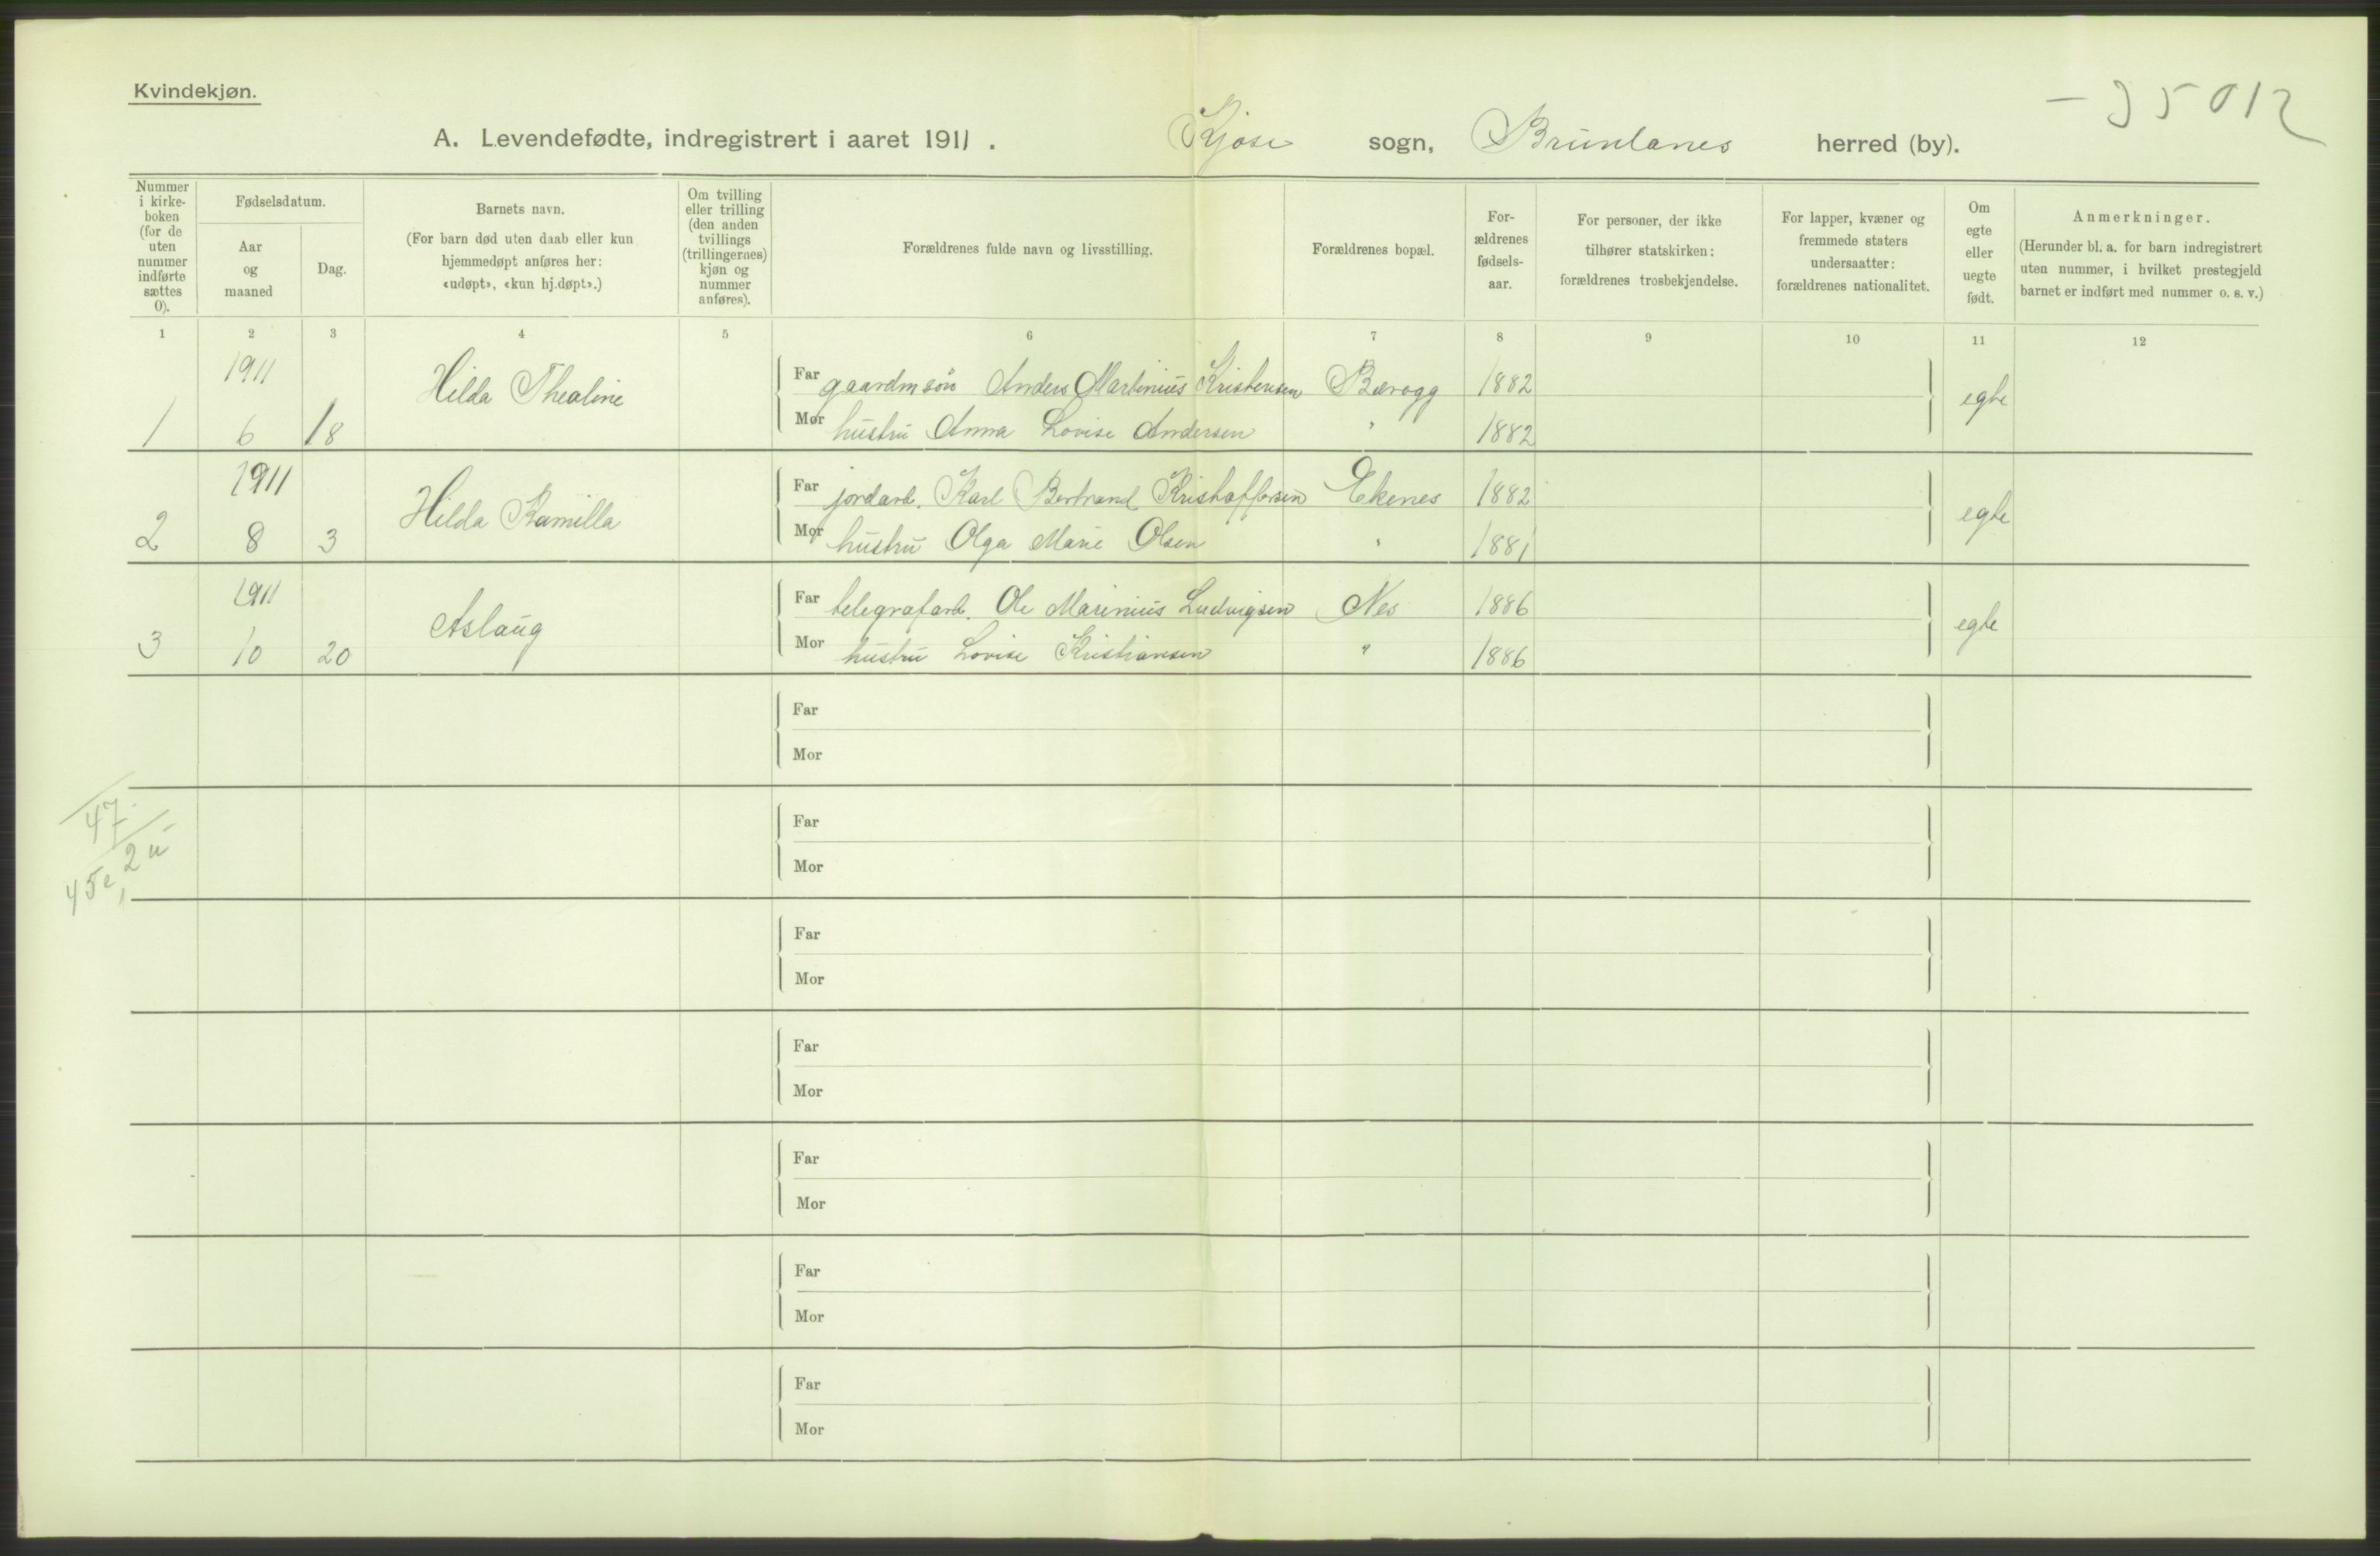 Kvindekjøn.
— 35012
A. Levendefødte, indregistrert i aaret 1911. Kjose sogn, Brunlanes herred (by).
Nummer i kirke-boken (for de uten nummer indførte sættes 0).
Fødselsdatum.
Aar og maaned
Dag.
Barnets navn.
(For barn død uten daab eller kun hjemmedøpt anføres her: «udøpt», «kun hj.døpt».)
Om tvilling eller trilling (den anden tvillings (trillingernes) kjøn og nummer anføres).
Forældrenes fulde navn og livsstilling.
Forældrenes bopæl.
For-ældrenes fødsels-aar.
For personer, der ikke tilhører statskirken: forældrenes trosbekjendelse.
For lapper, kvæner og fremmede staters undersaatter: forældrenes nationalitet.
Om egte eller uegte født.
Anmerkninger.
(Herunder bl. a. for barn indregistrert uten nummer, i hvilket prestegjeld barnet er indført med nummer o. s. v.)
1 2 3 4 5 6 7 8 9 10 11 12
1911 Hilda Thealine Far gaardmsøn Anders Martinius Kristensen Barogg 1882 egte
1 6 18 Mor hustru Anna Lovise Andersen " 1882
1911 Hilda Kamilla Far jordarb. Karl Bertrand Kristoffersen Ekenes 1882 egte
2 8 3 Mor hustru Olga Marie Olsen " 1881
1911 Aslaug Far telegrafarb. Ole Marinius Ludvigsen Nes 1886 egte
3 10 20 Mor hustru Lovise Kristiansen " 1886
Far
Mor
47
Far
45e, 2u
Mor
Far
Mor
Far
Mor
Far
Mor
Far
Mor
Far
Mor